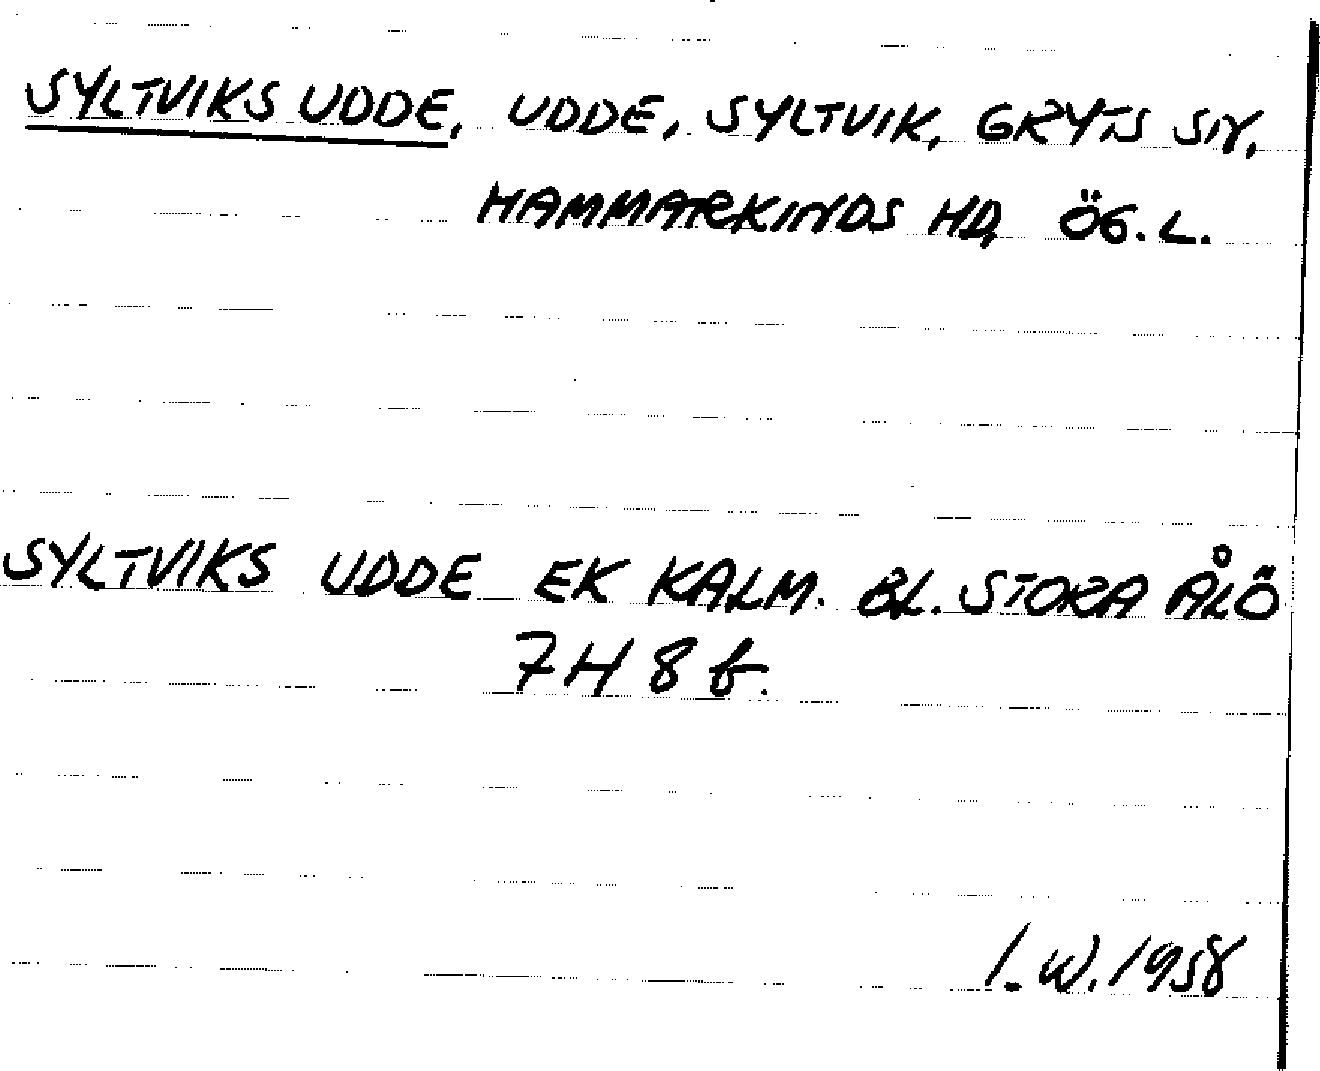 SYLTVIKS UDDE, UDDE, SYLTVIK, GRYTS SN,
HAMMARKINDS HD, ÖG.L.
SYLTVIKS UDDE EK KALM. BL. STORA ÅLÖ
7H 8 f.
I.W. 1958